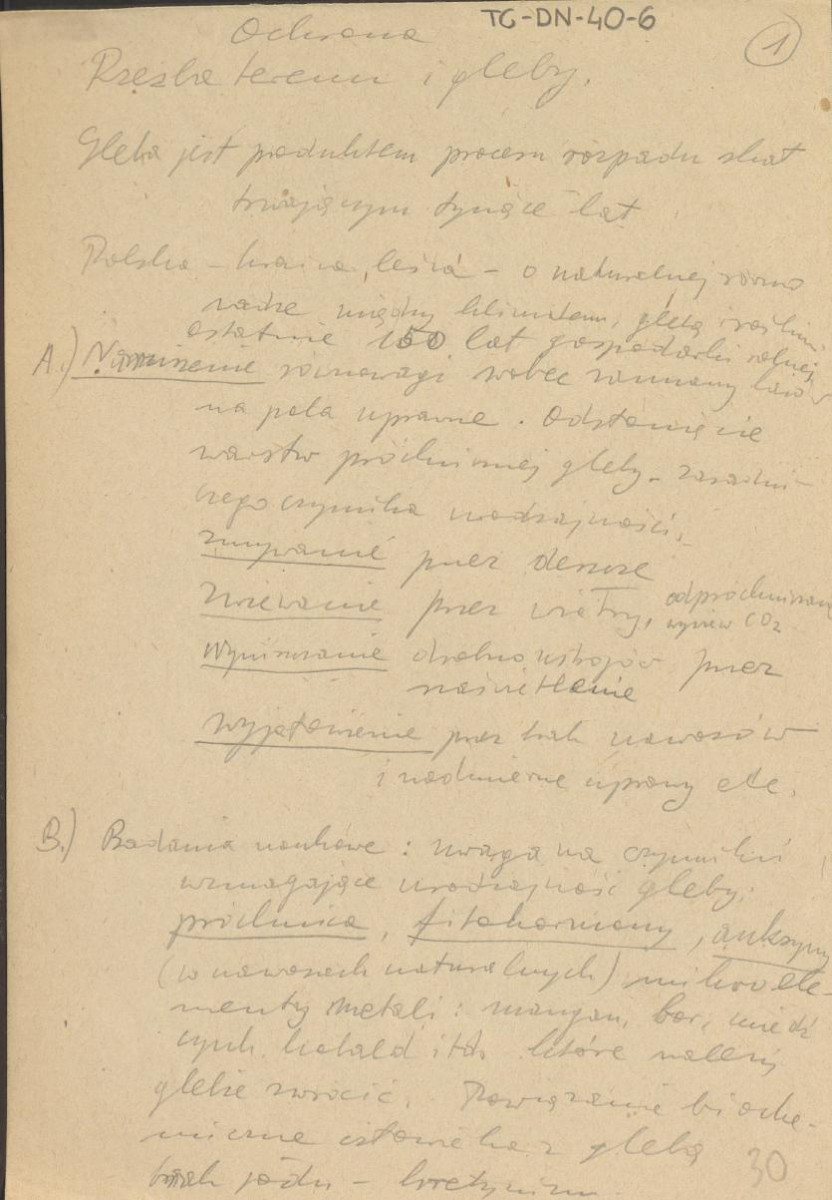 TG-DN-40-6
1
Ochrona
Rzeźba terenu i gleby.
Gleba jest produktem procesu rozpadu skał
trwającym tysiące lat
Polska – kraina leśna – o naturalnej równo
wadze między klimatem, glebą roślin
ostatnie 150 lat gospodarki rolnej
A.) Naruszenie równowagi wobec zamiany lasów
na pola uprawne. Odsłonięcie
warstw próchnicznej gleby – zasadni-
czego czynnika urodzajności,
zmywanie przez deszcze
zwiewanie przez wiatry, odpróchniczanie
wyziew CO2
Wyniszczanie drobnoustrojów przez
naświetlenie
wyjałowienie przez brak nawozów
i nadmierne uprawy etc.
B.) Badania naukowe: uwaga na czynniki
wzmagające urodzajność gleby:
próchnica, fitohormony, auksyny
(w nawozach naturalnych) mikroele-
menty metali: mangan, bor, miedź
cynk, kobald itd. które należy
glebie zwrócić. Powiązanie bioche-
miczne człowieka z glebą
brak jodu – kretynizm
30